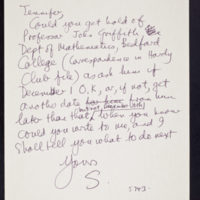 Jennifer,
Could you get hold of
Professor John Griffith
Dept of Mathematics, Bedford
College (Correspondence in Hardy
Club file) & ask him if
December 1 O.K, or, if not, get
another date from him
but not December 18th
later than that, when you know
Could you write to me, and I
shall tell you what to do next
Yours
S.